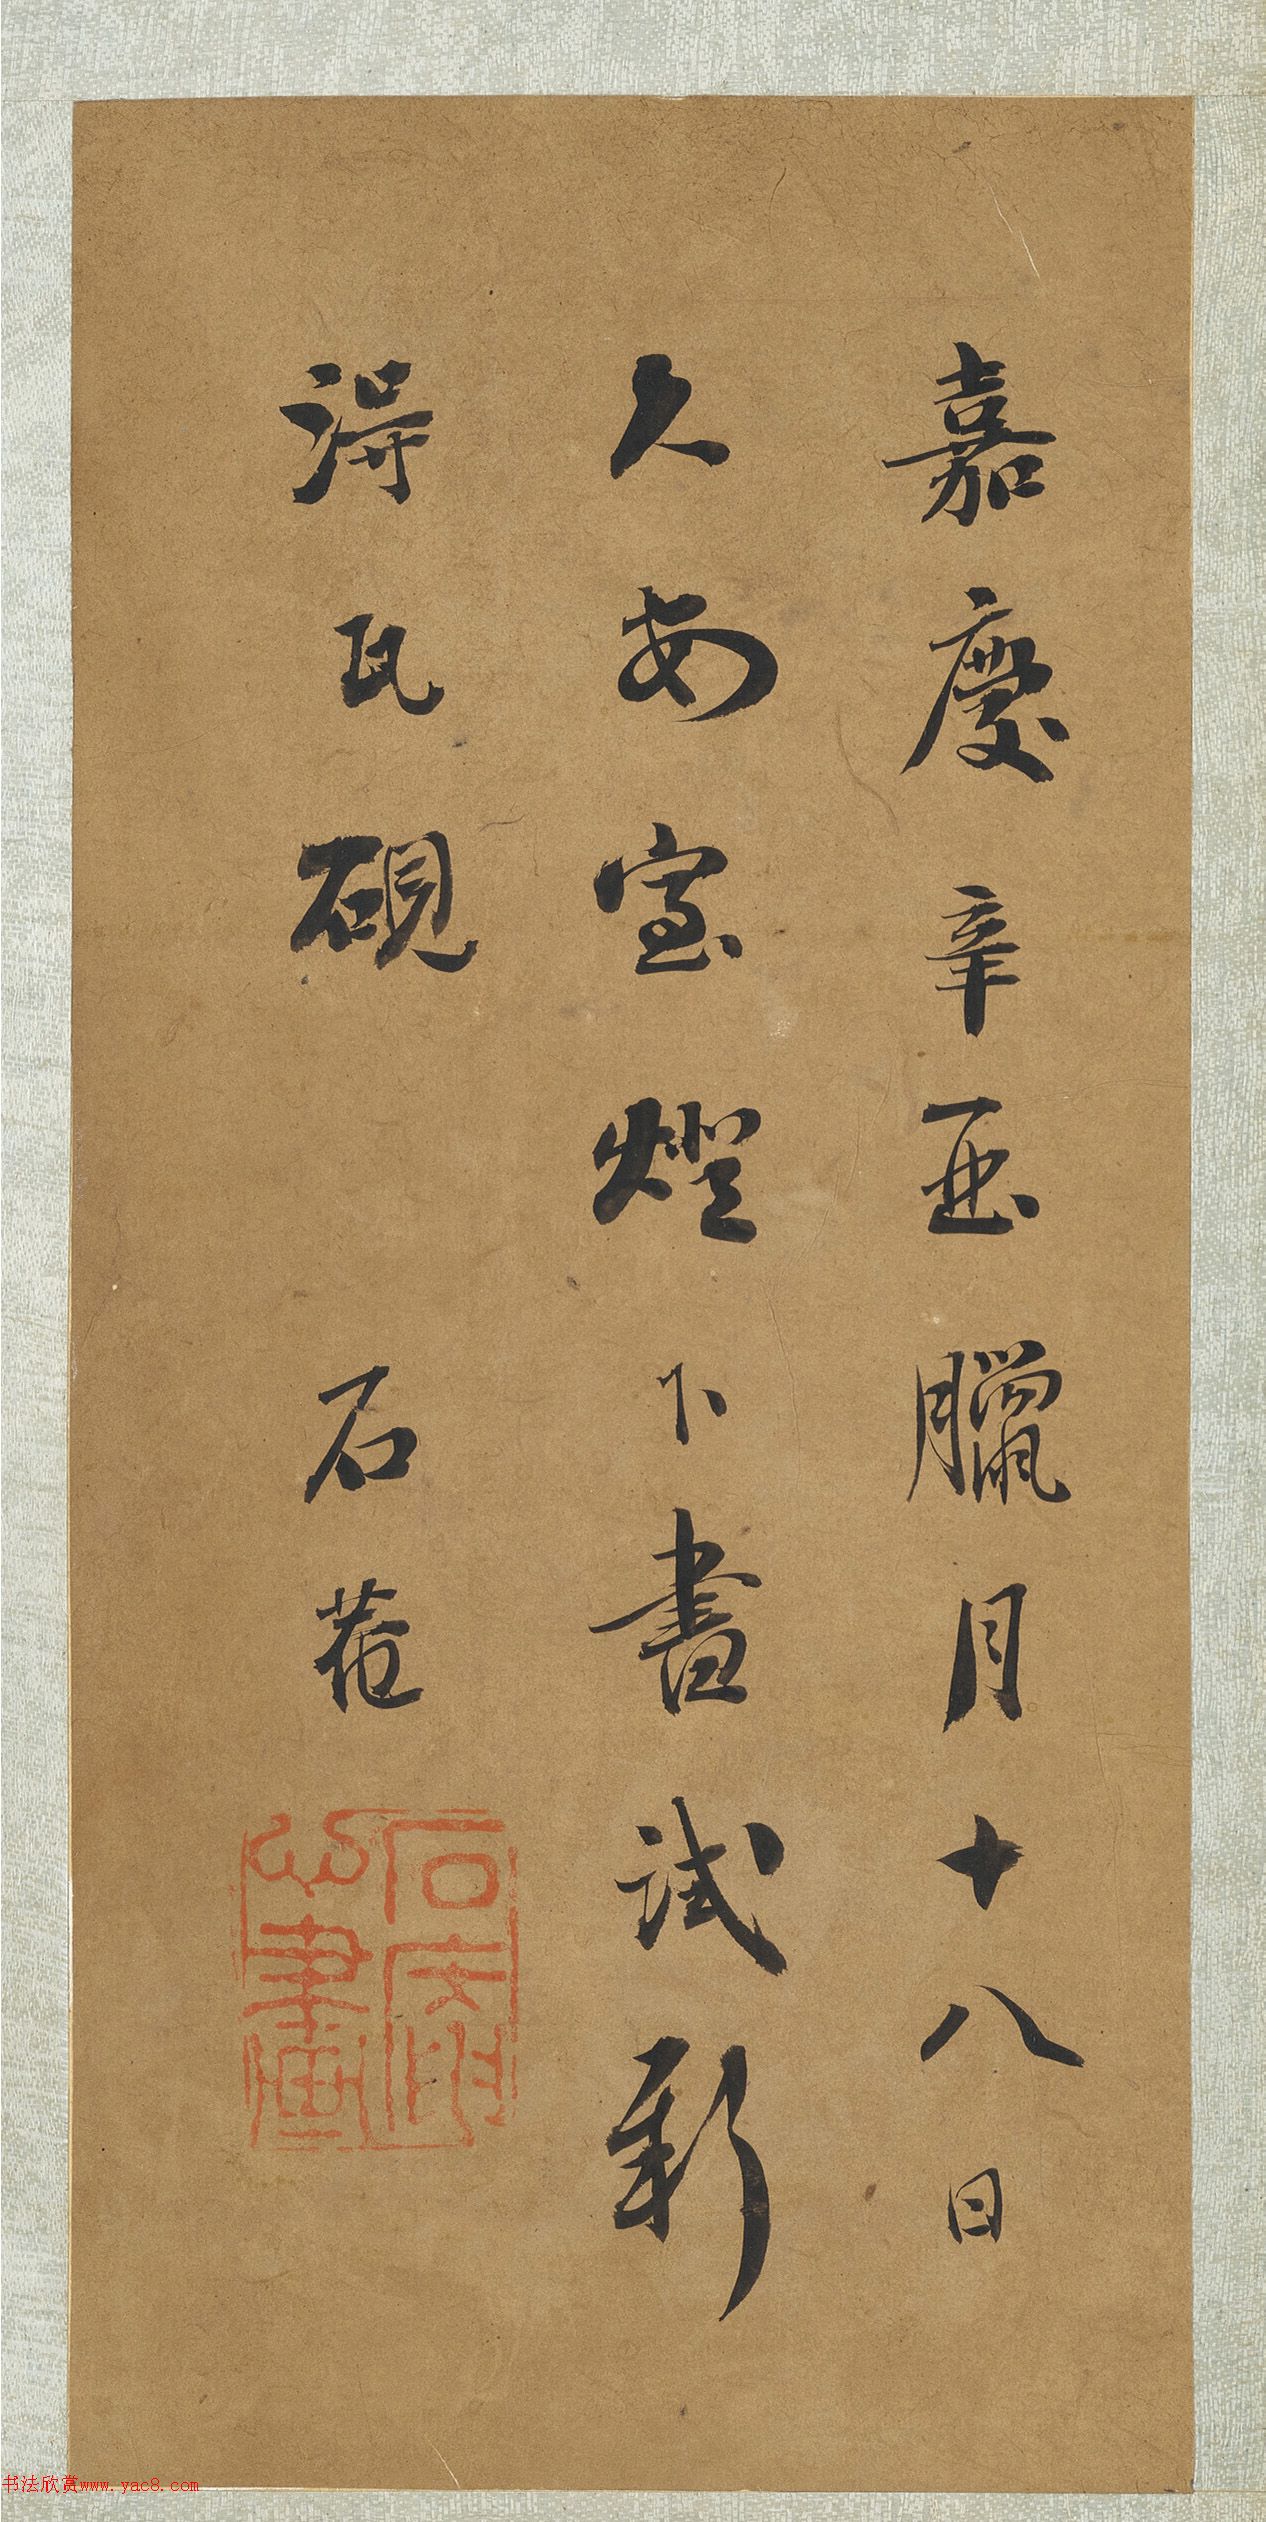 嘉慶辛酉臘月十八日
久安室燈下書試新
得瓦硯 石菴
书法欣赏www.yac8.com